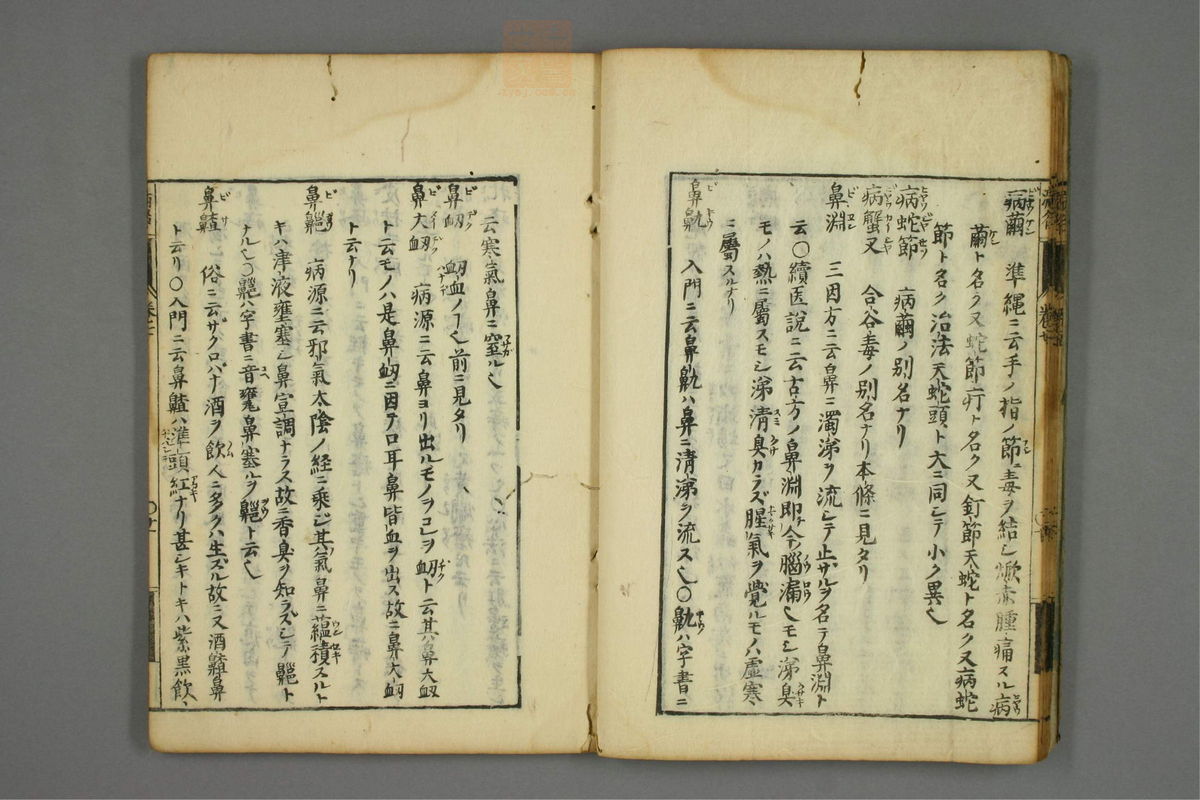 病繭 準縄ニ云手ノ指ノ節ニ毒ヲ結シ焮赤腫痛スル病
繭ト名ク又蛇節疔ト名ク又釘節天蛇ト名ク又病蛇
節ト名ク治法天蛇頭ト大ニ同シテ小ク異也
病蛇節 病繭ノ別名ナリ
病蟹叉 合谷毒ノ別名ナリ本條ニ見タリ
鼻淵 三因方ニ云鼻ニ濁涕ヲ流シテ止ザルヲ名テ鼻淵ト
云〇續医説ニ云古方ノ鼻淵即今腦漏也モシ涕臭
モノハ熱ニ屬スモシ涕清臭カラズ腥氣ヲ覺ルモノハ虚寒
ニ屬スルナリ
鼻鼽 入門ニ云鼻鼽ハ鼻ニ清涕ヲ流ス也〇鼽ハ字書ニ
云寒氣鼻ニ窒ル也
鼻衂 衂血ノ也前ニ見タリ
鼻大衂 病源ニ云鼻ヨリ出ルモノヲコレヲ衂ト云其ハ鼻大衂
ト云モノハ是鼻衂ニ因テロ耳鼻皆血ヲ出ス故ニ鼻大衂
ト云ナリ
鼻齆 病源ニ云邪氣太陰ノ経ニ乘ジ其氣鼻ニ蘊積スルト
キハ津液壅塞シ鼻宣調ナラス故ニ香臭ヲ知ラズシテ齆ト
ナル也〇齆ハ字書ニ音甕鼻塞ルヲ齆ト云也
鼻齄 俗ニ云ザクロバナ酒ヲ飲人ニ多クハ生ズル故ニ又酒齄鼻
ト云リ〇入門ニ云鼻齄ハ準頭紅ナリ甚シキトキハ紫黒飲